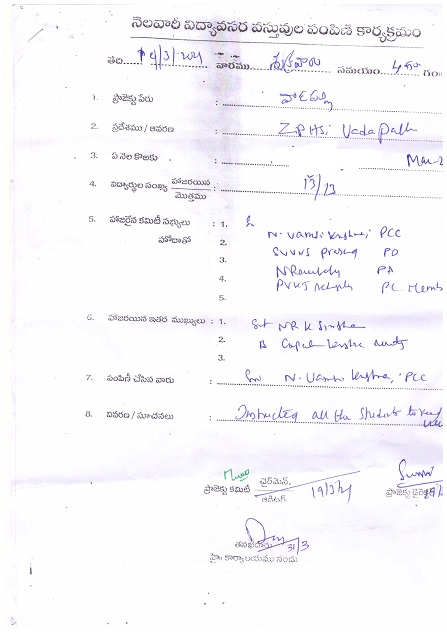 నెలవారీ విద్యావసర వస్తువుల పంపిణి కార్యక్రమం
తేది 19/3/2021 వారము శుక్రవారం సమయం 4 గం
1. ప్రాజెక్టు పేరు : వాడపల్లి
2. ప్రదేశము / ఆవరణ : ZPHS, Vadapalli
3. ఏ నెల కొఱకు : Mar-2
4. విద్యార్థుల సంఖ్య హాజరయిన / మొత్తము : 13/13
5. హాజరైన కమిటీ సభ్యులు : 1.
హోదాతో 2. N. Vamsi Krishna, PCC
3. SVVVS Prasad PD
4. PA
5. PC Memb
6. హాజరయిన ఇతర ముఖ్యులు : 1. Sri NRK Simha
2. B Gopala Krishna
3.
7. పంపిణీ చేసిన వారు : Sri N. Vamsi Krishna, PCC
8. వివరణ / సూచనలు : Instructed all the students to
ప్రాజెక్టు కమిటీ ఛైర్మెన్. 19/3/21
ఆడిటర్
తనిఖీదారు 31/3
హై. కార్యాలయము నందు